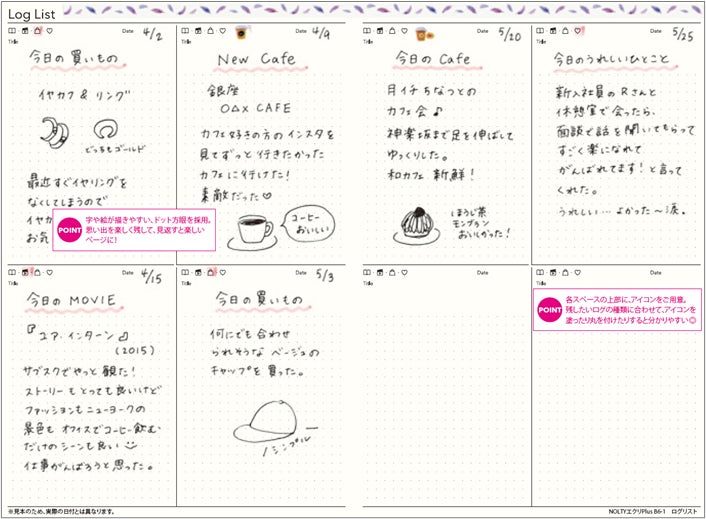 Log List
Date 4/2
Title
今日の買いもの
イヤカフ & リング
どっちもゴールド
最近すぐイヤリングを
なくしてしまうので
イヤカ
お気
POINT
字や絵が描きやすい、ドット方眼を採用。
思い出を楽しく残して、見返すと楽しい
ページに!
Date 4/9
Title
New Cafe
銀座
○△× CAFE
カフェ好きの方のインスタを
見てずっと行きたかった
カフェに行けた!
素敵だった♡
コーヒー
おいしい
Date 5/20
Title
今日の Cafe
月イチ ちなつとの
カフェ会♪
神楽坂まで足を伸ばして
ゆっくりした。
和カフェ 新鮮!
ほうじ茶
モンブラン
おいしかった!
Date 5/25
Title
今日のうれしいひとこと
新入社員の Rさんと
休憩室で会ったら、
面談で話を聞いてもらって
すごく楽になれて
がんばれてます! と言って
くれた。
うれしい…よかった〜涙。
Date 4/15
Title
今日の MOVIE
『マイ・インターン』
(2015)
サブスクでやっと観た!
ストーリーもとっても良いけど
ファッションもニューヨークの
景色も オフィスでコーヒー飲む
だけのシーンも良い
仕事がんばろうと思った。
Date 5/3
Title
今日の買いもの
何にでも合わせ
られそうな ベージュの
キャップを買った。
シンプル
Date
Title
Date
Title
POINT
各スペースの上部に、アイコンをご用意。
残したいログの種類に合わせて、アイコンを
塗ったり丸を付けたりすると分かりやすい◎
※見本のため、実際の日付とは異なります。
NOLTYエクリPlus B6-1 ログリスト